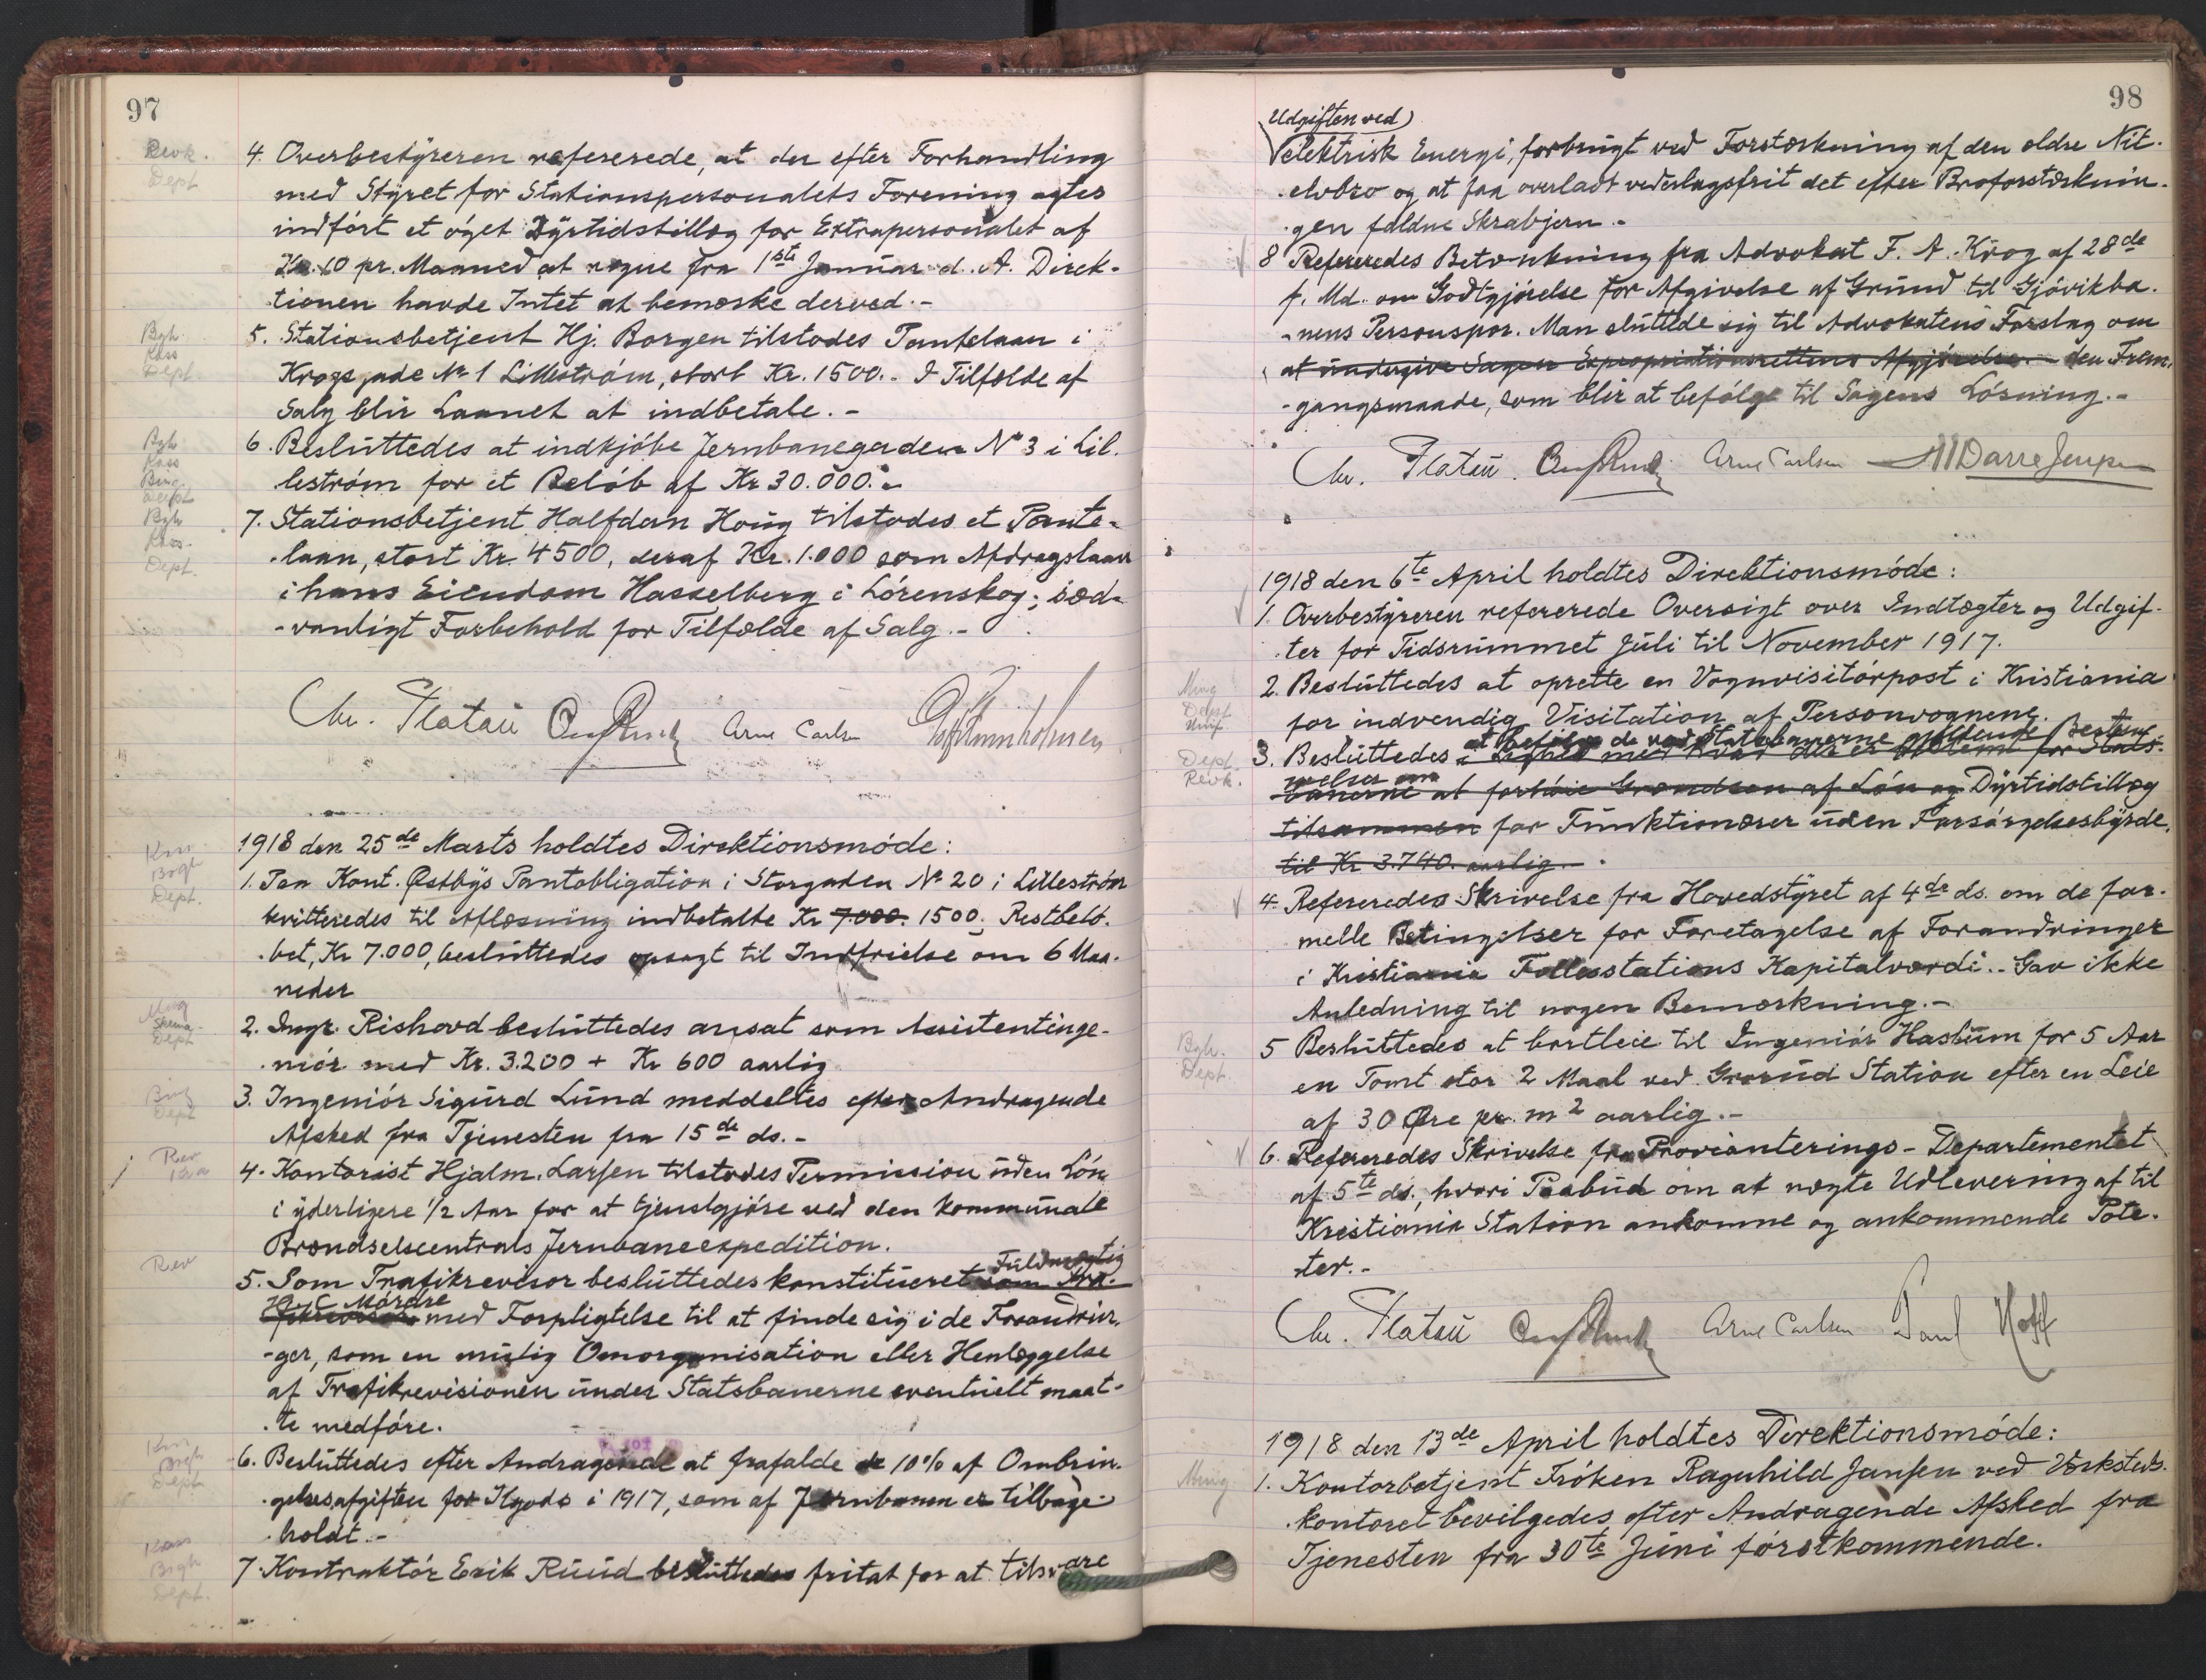 97
Revk.
Dept
4. Overbestyreren refererede, at der efter Forhandling
med Styret for Stationspersonalets Forening agtes
indført et øget Dyrtidstillæg for Extrapersonalet af
Kr. 10 pr. Maaned at regne fra 1ste Januar d. A. Direk-
tionen havde Intet at bemærke derved.-
Bgh.
Kass
Dept
5. Stationsbetjent Hj. Borgen tilstodes Pantelaan i
Krogsgade No 1 Lilleström, stort Kr. 1500.- I Tilfælde af
Salg blir Laanet at indbetale.-
Bgh
Kass
Dept
6. Besluttedes at indkjöbe Jernbanegaden No 3 i Lil-
leström for et Belöb af Kr 30.000.-
Bgh
Kass.
Dept.
7. Stationsbetjent Halfdan Houg tilstodes et Pante-
laan, stort Kr. 4500, deraf Kr. 1.000 som Afdragslaan
i hans Eiendom Hasselberg i Lörenskog; sæd-
vanligt Forbehold for Tilfælde af Salg.-
Chr. Platou Arne Carlsen
1918 den 25de Marts holdtes Direktionsmöde:
Kass
Bogh
Dept.
1. Paa Kont. Østbys Pantobligation i Storgaden No 20 i Lilleström
kvitteredes til Aflæsning indbetalte Kr 7.000. 1500. Restbelö-
bet, Kr 7.000, besluttedes opsagt til Indfrielse om 6 Maa-
neder
Dept
2. Ingr. Rishovd besluttedes ansat som Assistentinge-
niör med Kr. 3.200 + Kr 600 aarlig
Dept
3. Ingeniör Sigurd Lund meddeltes efter Andragende
Afsked fra Tjenesten fra 15de ds.-
Rev
4. Kontorist Hjalm. Larsen tilstodes Permission uden Lön
i yderligere 1/2 Aar for at tjenstgjöre ved den kommunale
Brændselscentrals Jernbaneexpedition.
Rev
Fuldmægtig
5. Som Trafikrevisor besluttedes konstitueret som Tra-
H. C. Mördre
fikrevisor med Forpligtelse til at finde sig i de Forandrin-
ger, som en mulig Omorganisation eller Henlæggelse
af Trafikrevisionen under Statsbanerne eventuelt maat-
te medföre.
Bogh
Dept
6. Besluttedes efter Andragende at frafalde de 10% af Ombrin-
gelsesafgiften for Ilgods i 1917, som af Jernbanen er tilbage-
holdt.-
Kass
Bogh
Dept.
7. Kontraktör Erik Ruud besluttedes fritat for at tilsvare
98
Udgiften ved
elektrisk Energi, forbrugt ved Forstærkning af den ældre Nit-
elvbro og at faa overladt vederlagsfrit det efter Broforstærknin-
gen faldne Skrabjern.-
8 Refereredes Betænkning fra Advokat F. A. Krog af 28de
f. Md. om Godtgjörelse for Afgivelse af Grund til Gjövikba-
nens Personspor. Man sluttede sig til Advokatens Forslag om
at undergive Sagen Expropriationsrettens Afgjörelse.- den Frem-
gangsmaade, som blir at befölge til Sagens Lösning.-
Chr. Platou Arne Carlsen Darre Jensen
1918 den 6te April holdtes Direktionsmöde:
1. Overbestyreren refererede Oversigt over Indtægter og Udgif-
ter for Tidsrummet Juli til November 1917.
Ming
Dept
2. Besluttedes at oprette en Vognvisitörpost i Kristiania
for indvendig Visitation af Personvognene.
at befölge de ved Statsbanerne gjældende Bestem-
Dept
Revk.
3. Besluttedes i Lighed med hvad der er bestemt for Stats-
melser om
banerne at forhöie Grændsen af Lön og Dyrtidstillæg
tilsammen for Funktionærer uden Forsörgelsesbyrde,
til Kr 3.740. aarlig.-
4. Refereredes Skrivelse fra Hovedstyret af 4de ds. om de for-
melle Betingelser for Foretagelse af Forandringer
i Kristiania Fællesstations Kapitalværdi.- Gav ikke
Anledning til nogen Bemærkning.-
Bgh.
Dept.
5 Besluttedes at bortleie til Ingeniör Haslum for 5 Aar
en Tomt stor 2 Maal ved Grorud Station efter en Leie
af 30 Øre pr. m2 aarlig.-
6. Refereredes Skrivelse fra Provianterings-Departementet
af 5te ds., hvori Paabud om at nægte Udlevering af til
Kristiania Station ankomne og ankommende Pote-
ter.-
Chr. Platou Arne Carlsen Paul Hoff
1918 den 13de April holdtes Direktionsmöde:
Ming
1. Kontorbetjent Fröken Ragnhild Jansen ved Værksteds-
kontoret bevilgedes efter Andragende Afsked fra
Tjenesten fra 30te Juni förstkommende.